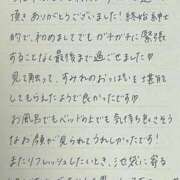 頂きありがとうございました！終始紳士
的で、初めましてでもガチガチに緊張
することなく最後まで過ごせました♡
見て触って、すみれのおっぱいを堪能
してもらえたようで良かったです♡
お風呂でもベッドの上でも気持ち良さそう
なお顔が見られてうれしかったです！
またリフレッシュしたいとき、池袋に寄る